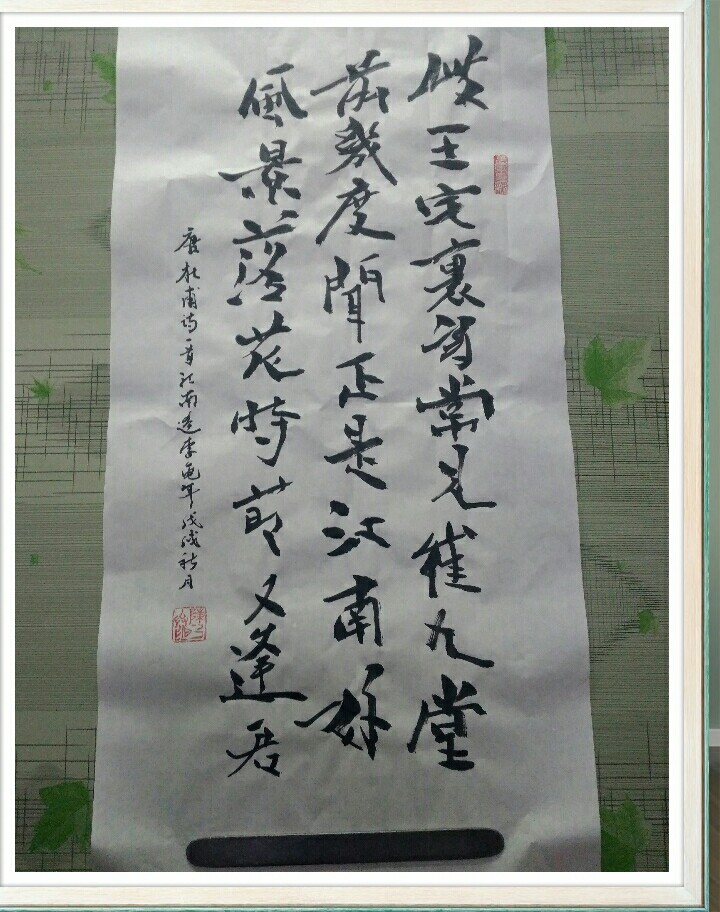 岐王宅裏尋常見崔九堂
前幾度聞正是江南好
風景落花時節又逢君
唐杜甫诗一章江南逢李龟年戊戌秋月